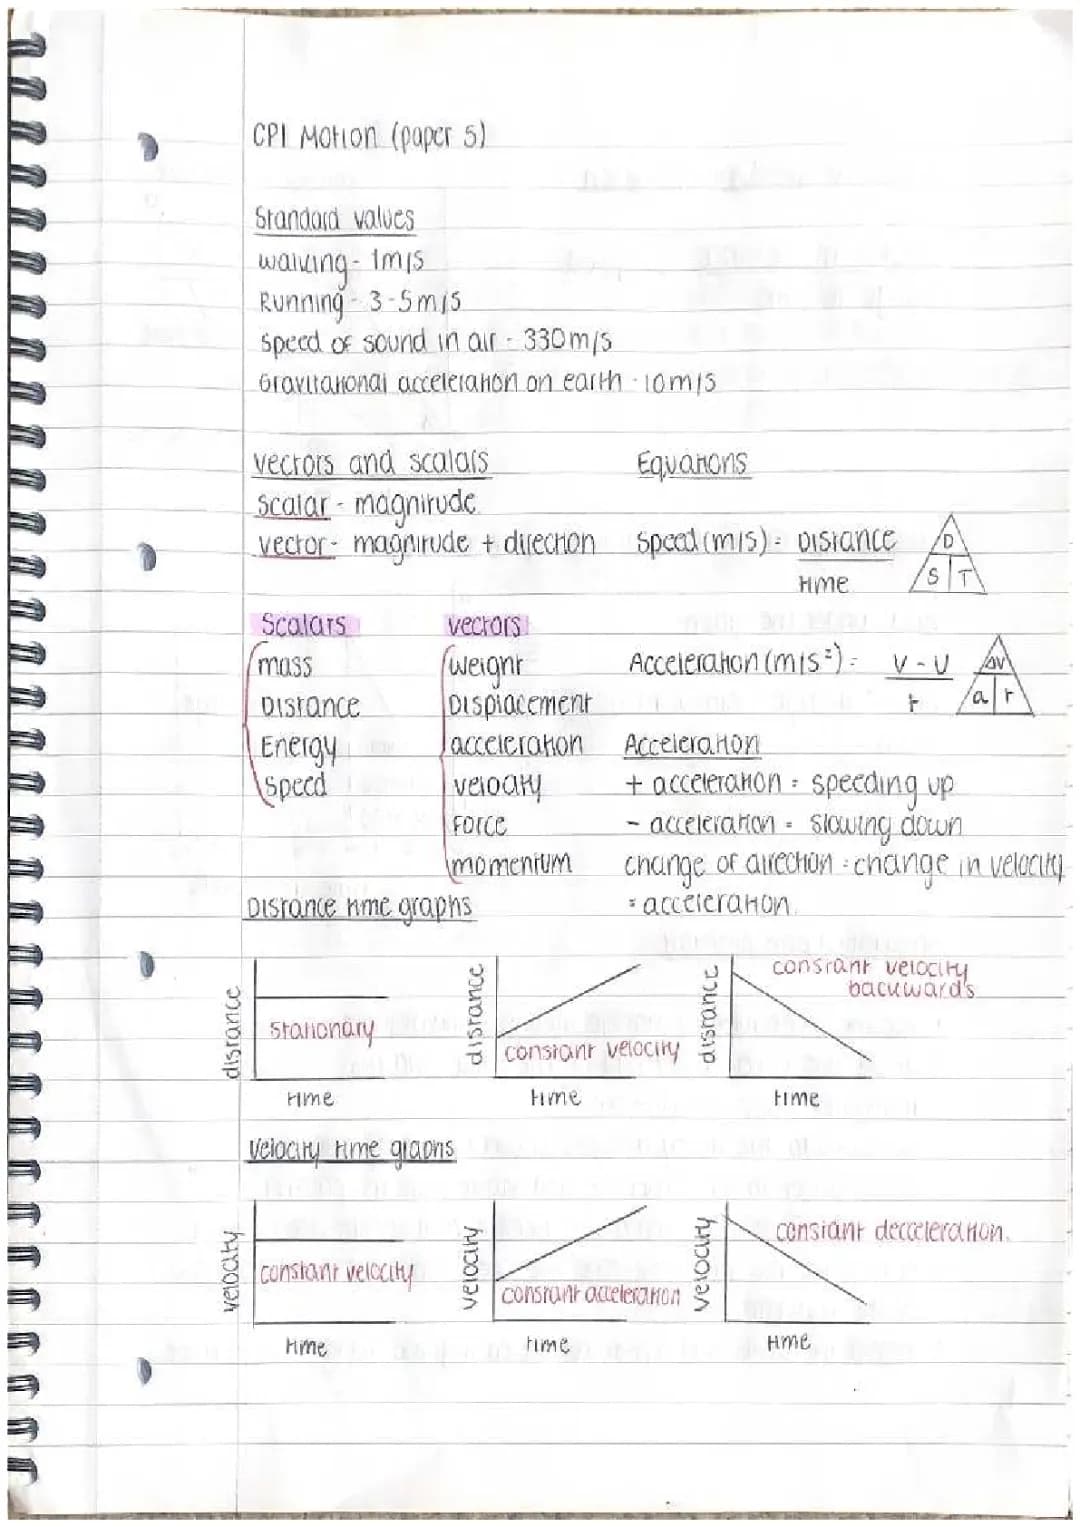 CP1 Motion (paper 5)
Standard values
walking - 1m/s
Running - 3-5m/s
Speed of sound in air - 330m/s
Gravitational acceleration on earth - 10m/s
vectors and scalars
Equations
Scalar - magnitude
vector - magnitude + direction
Speed (m/s) = Distance
time
D
S T
Scalars
vectors
mass
Distance
Energy
Speed
weight
Displacement
acceleration
velocity
Force
momentum
Acceleration (m/s²) = V - U
t
ΔV
a t
Acceleration
+ acceleration = speeding up
- acceleration = slowing down
change of direction = change in velocity
= acceleration.
Distance time graphs
distance
stationary
time
distance
constant velocity
time
distance
constant velocity
backwards
time
Velocity time graphs
velocity
constant velocity
time
velocity
constant acceleration
time
velocity
constant decceleration.
time